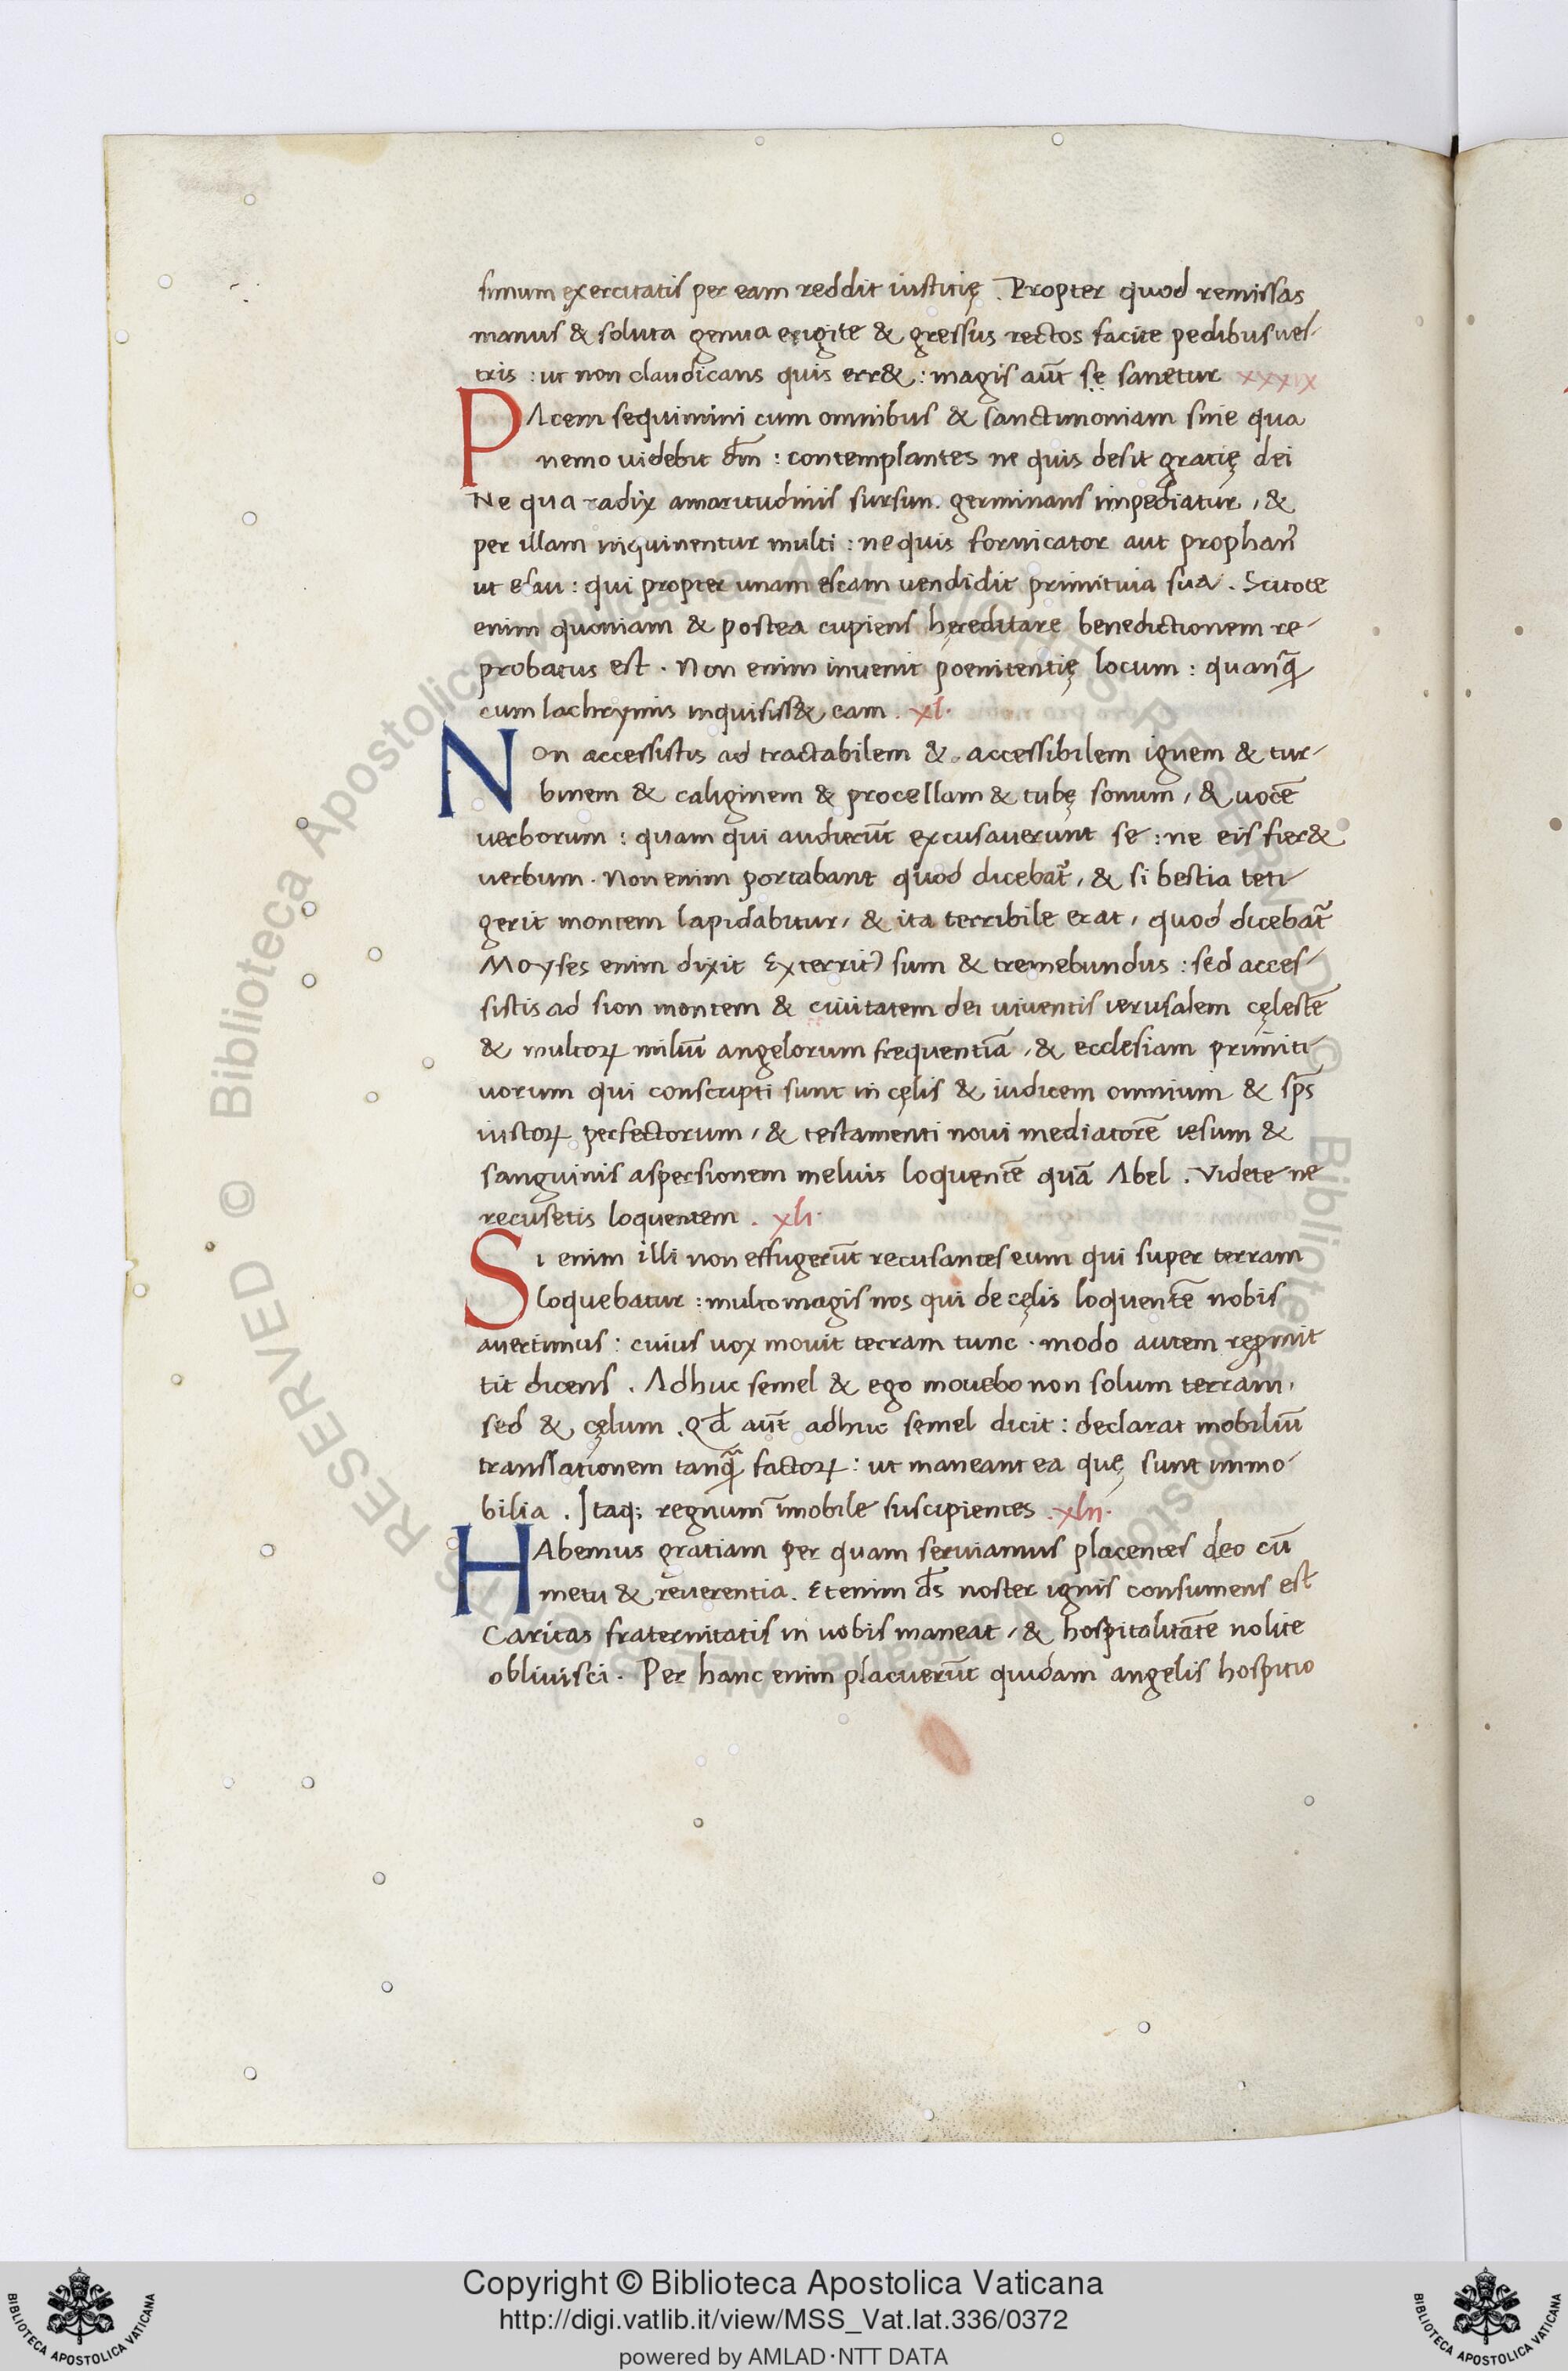 simum exercitatis per eam reddit iusticię. Propter quod remissas
manus & soluta genua erigite & gressus rectos facite pedibus ues-
tris : ut non claudicans quis err& : magis aut̄ sẹ sanetur xxxix
PAcem sequimini cum omnibus & sanctimoniam sine qua
nemo uidebit dm̄ : contemplantes ne quis desit gracię dei
Ne qua radix amaritudinis sursun. germinans impediatur, &
per illam inquinentur multi : ne quis fornicator aut prophan᾽
ut esau : qui propter unam escam vendidit primitiuia sua. Scitote
enim quoniam & postea cupiens hęreditare benedictionem re-
probatus est. Non enim inuenit poenitentię locum : quanq̄
cum lachrymis inquisiss& eam. xl.
NOn accessistis ad tractabilem & accessibilem ignem & tur-
binem & caliginem & procellam & tubę sonum, & uocē
verborum : quam qui audierūt excusauerunt se : ne eis fier&
verbum. Non enim portabant quod dicebat᷑, & si bestia teti-
gerit montem lapidabitur, & ita terribile erat, quod dicebat᷑
Moyses enim dixit Exterrit᾽ sum & tremebundus : sed acces-
sistis ad sion montem & ciuitatem dei uiuentis ierusalem cęlestē
& multoꝝ miliū angelorum frequentiā, & ecclesiam primiti-
uorum qui conscripti sunt in cęlis & iudicem omnium & sp̄s
iustoꝝ perfectorum, & testamenti noui mediatorē iesum &
sanguinis aspersionem melius loquentē quā Abel. Videte ne
recusetis loquentem. xli.
SI enim illi non effugerūt recusantes eum qui super terram
loquebatur : multo magis nos qui de cęlis loquentē nobis
auertimus : cuius uox mouit terram tunc. modo autem repmit
tit dicens. Adhuc semel & ego mouebo non solum terram,
sed & cęlum. Qd̄ aut̄ adhuc semel dicit : declarat mobiliū
translationem tanq̄ factoꝝ : ut maneant ea quę sunt immo-
bilia. Itaq; regnum īmobile suscipientes. xlii.
HAbemus gratiam per quam seruiamus placentes deo cū
metu & reuerentia. Etenim ds̄ noster ignis consumens est
Caritas fraternitatis in uobis maneat, & hospitalitatē nolite
obliuisci. Per hanc enim placuerūt quidam angelis hospitio
Copyright © Biblioteca Apostolica Vaticana
http://digi.vatlib.it/view/MSS_Vat.lat.336/0372
powered by AMLAD·NTT DATA
BIBLIOTECA APOSTOLICA VATICANA
BIBLIOTECA APOSTOLICA VATICANA